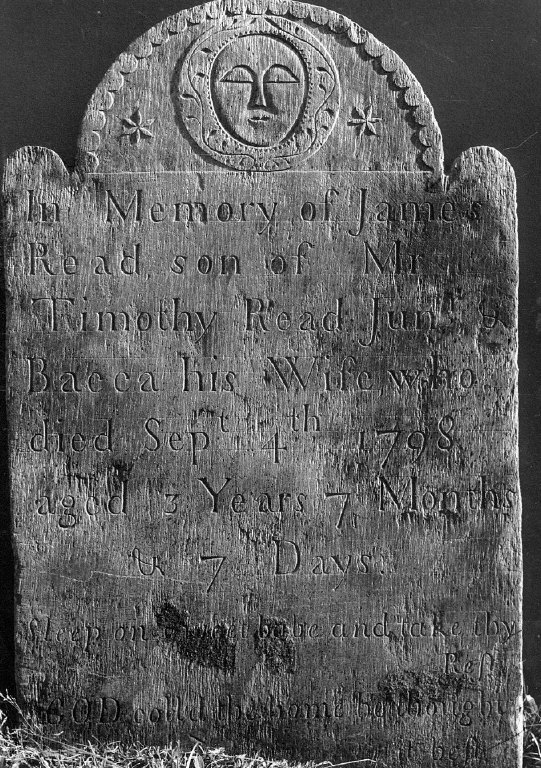 In Memory of James
Read, son of Mr
Timothy Read Junr &
Bacca his Wife, who
died Sept 4th 1798
aged 3 Years 7 Months
& 7 Days.
Sleep on sweet babe and take thy
Rest
GOD calld the home he thought
it best